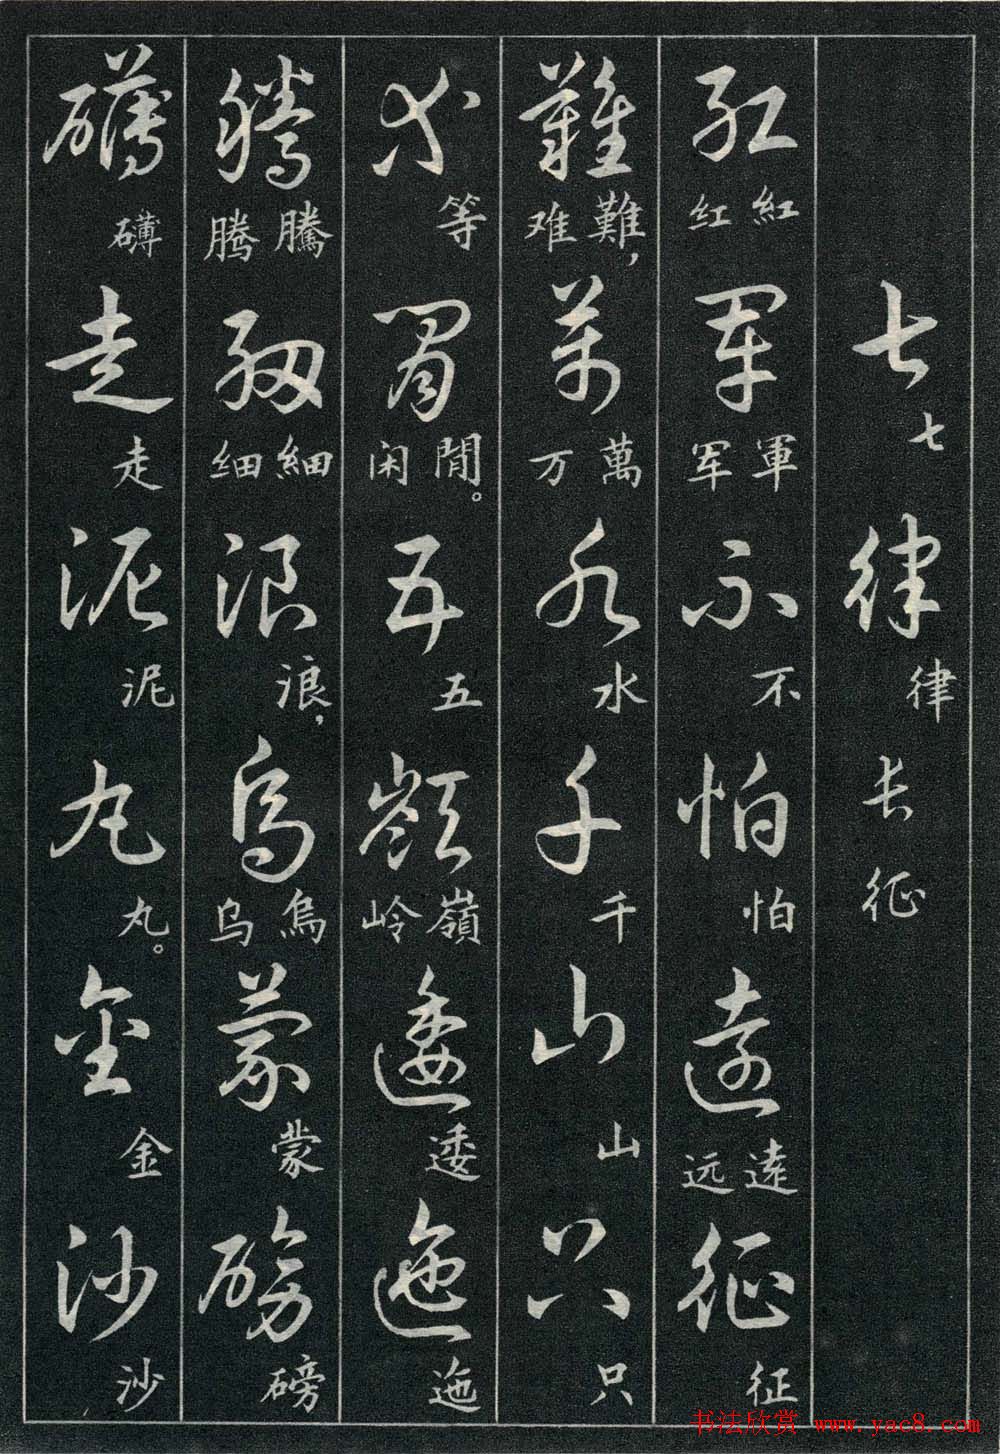 七 七 律 律 长 征
紅 紅 红 軍 軍 军 不 不 怕 怕 遠 遠 远 征 征
難 難, 难 萬 萬 万 水 水 千 千 山 山 只 只
等 等 閒 閒。 闲 五 五 嶺 嶺 岭 逶 逶 迤 迤
騰 騰 腾 細 細 细 浪 浪, 烏 烏 乌 蒙 蒙 磅 磅
礴 礴 走 走 泥 泥 丸 丸。 金 金 沙 沙
书法欣赏 www.yac8.com